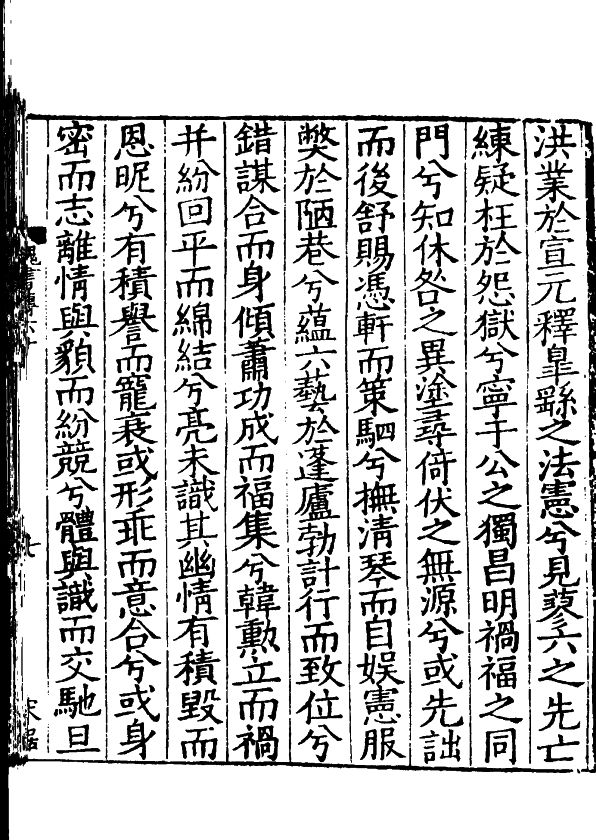 洪業於宣元釋皐繇之法憲兮見蓼六之先亡
練疑枉於怨獄兮寧于公之獨昌明禍福之同
門兮知休咎之異塗尋倚伏之無源兮或先詘
而後舒賜憑軒而策駟兮撫清琴而自娛憲服
獘於陋巷兮蘊六藝於蓬廬勃計行而致位兮
錯謀合而身傾蕭功成而福集兮韓勲立而禍
并紛回平而綿結兮亮未識其幽情有積毀而
恩昵兮有積譽而寵衰或形乖而意合兮或身
密而志離情與貌而紛競兮體與識而交馳旦
魏書傳六十
七